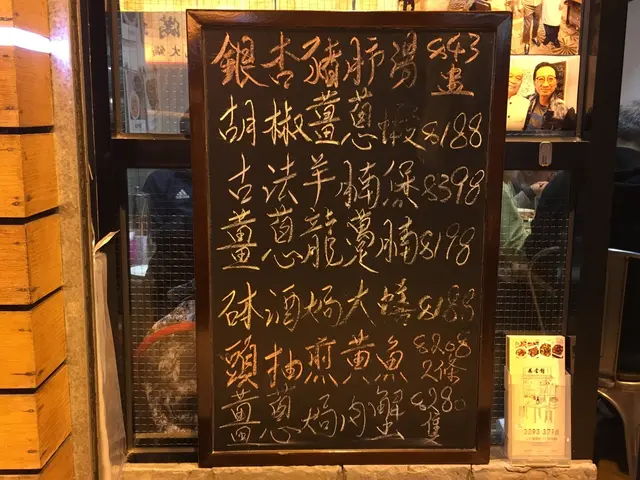 銀杏豬肺湯 $43
盅
胡椒薑蔥蝦 $188
古法羊腩煲 $398
薑蔥龍躉腩 $198
砵酒焗大蠔 $188
頭抽煎黃魚 $208
2條
薑蔥焗肉蟹 $280
隻